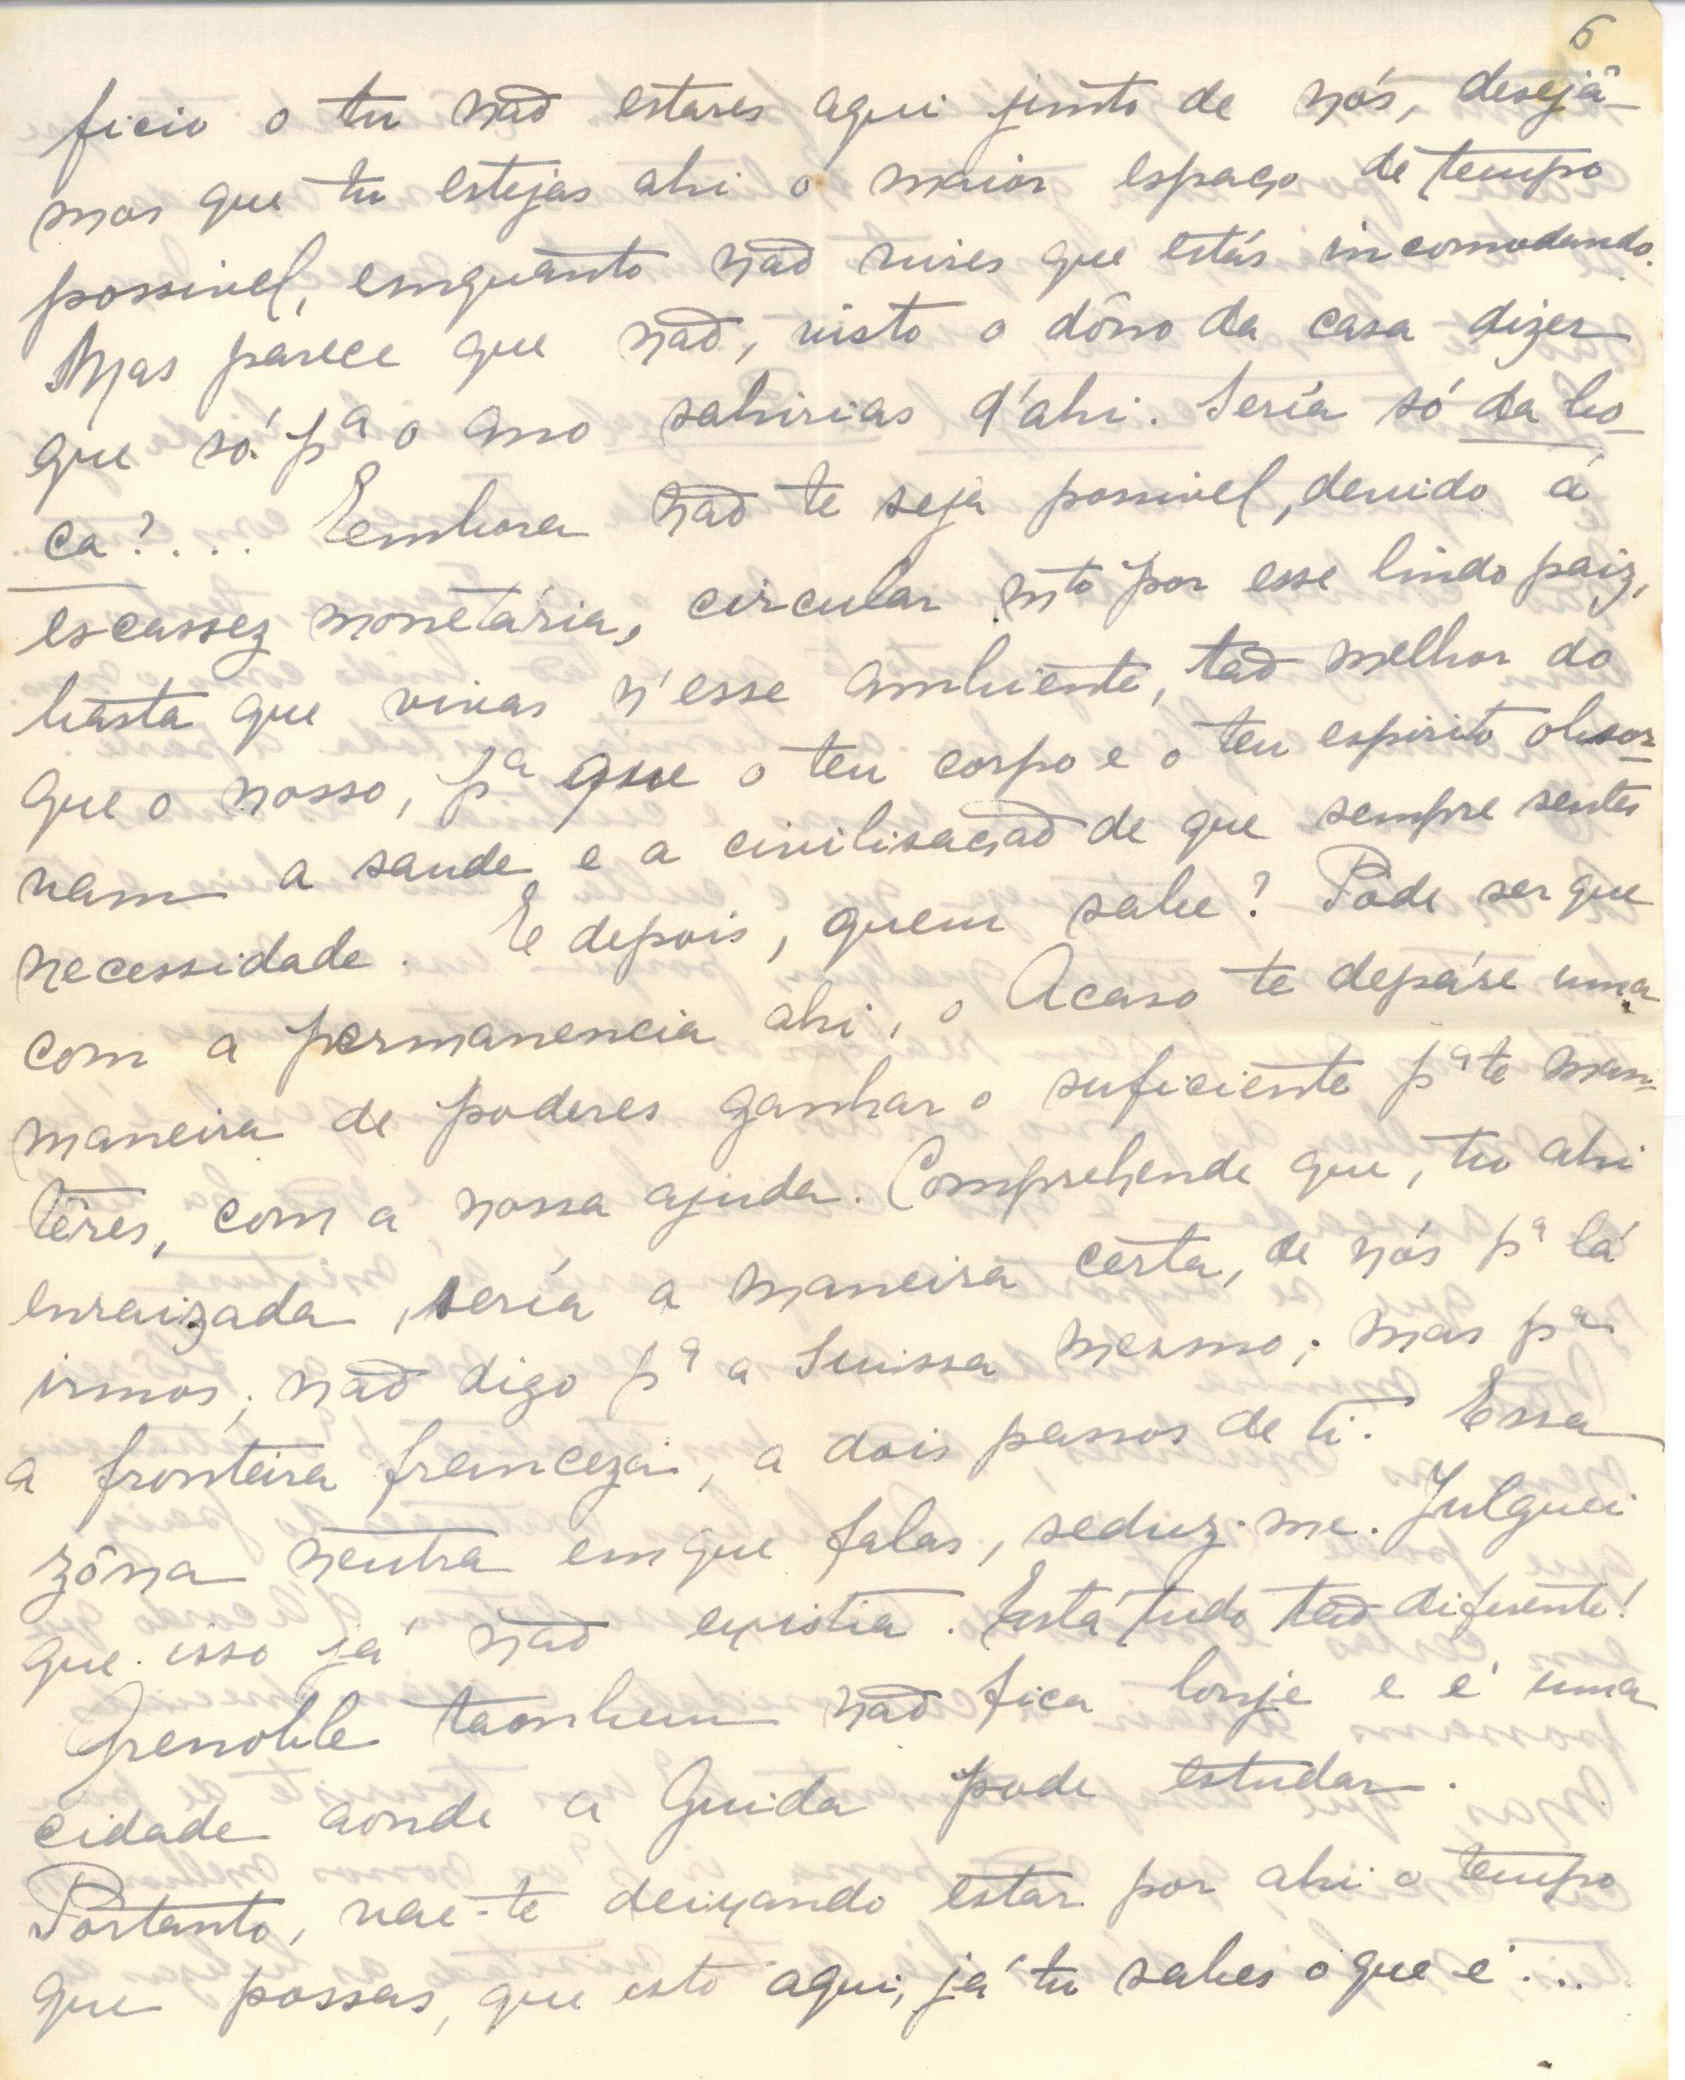 6
ficio o tu não estares aqui junto de nós, desejâ-
mos que tu estejas ahi o maior espaço de tempo
possivel, emquanto não vires que estás incomodando.
Mas parece que não, visto o dôno da casa dizer
que só pª o ano sahirias d'ahi. Sería só da bo-
ca?.... Embora não te seja possivel, devido á
escassez monetária, circular mto por esse lindo paiz,
basta que vivas n'esse ambiente, tão melhor do
que o nosso, pª que o teu corpo e o teu espirito obsor-
vam a saude e a civilisação de que sempre sentes
necessidade. E depois, quem sabe? Póde ser que
com a permanencia ahi, o Acaso te depáre uma
maneira de poderes ganhar o suficiente pª te man-
têres, com a nossa ajuda. Comprehende que, tu ahi
enraizada, sería a maneira certa, de nós pª lá
irmos; não digo pª a Suissa mesmo; mas pª
a fronteira franceza, a dois passos de ti. Essa
zôna neutra em que falas, seduz-me. Julguei
que isso já não existia. Está tudo tão diferente!
Grenoble tambem não fica lonje e é uma
cidade aonde a Guida pode estudar.
Portanto, vae-te deixando estar por ahi o tempo
que possas, que isto aqui, já tu sabes o que é...